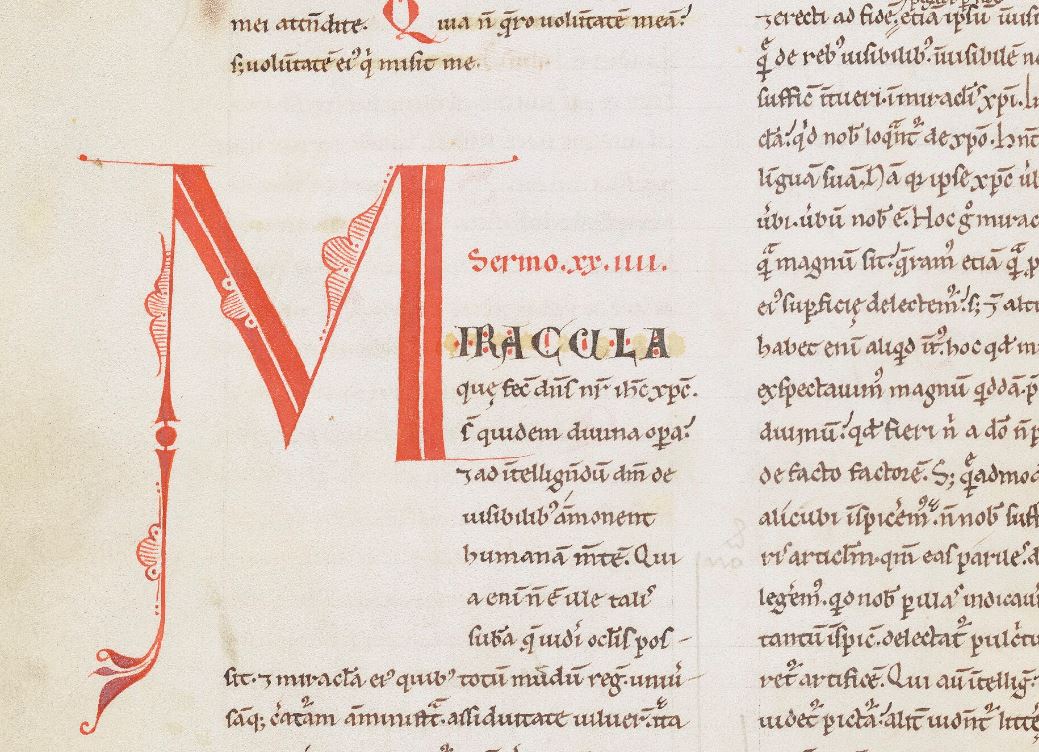 mei attendite. Quia n̄ q̄ro volūtatē meā?
s; volūtatē ei᾽ q̇ misit me.
Sermo. xx. iiii.
MIRACULA
quę fec̄ dn̄s nr̄ ih̄c xp̄c.
s̄ quidem divina opa?
⁊ ad ītellign̄dū dm̄ de
visibilib᾽ āmonent
humanā m̄tē. Qui
a eni n̄ ē ille talis
sub̄a q̄ videri oclīs pos-
sit. ⁊ miracl̄a ei᾽ quib᾽ totū mūdū reḡ. univ̇-
sāq; c̄atāam āmīnistt̄. assiduitate viluer̄. ita
⁊ erecti ad fidē, etiā ipsū īvis
q̄ de reb᾽ visibilib᾽. īvisibilē n
suffic̄ ītueri. ī miracl̄is xp̄i. In
cta? q̇d nob̄ loqn̄t᾽ de xp̄o. hn̄t
līguā suā. Nā q ipse xp̄c v̄b
v̄bi. v̄bū nob̄ ē. Hoc g̊ mirac
q̄ magnū sit? q̄ram᾽ etiā q̄ p
ei᾽ supficię delectem᾽? s; ⁊ alti
habet eni aliq̇d īt᾽. hoc qd̄ m
exspectavim᾽ magnū q̇ddā. p
divinū? qd̄ fieri n̄ a dō n̄ p
de facto factorē. S; q̄admo
alicubi īspicem᾽. n̄ nob̄ suff
ri᾽ articlm̄. qm̄ eas parvles. a
legēm᾽. q̇d nob̄ p illas indicavi
tantū īspic̄. delectat᾽ pulc̄tu
ret᾽ artificē. Qui au ītelliḡ.
videt᾽ pictā? alit᾽ vidnt᾽ litte